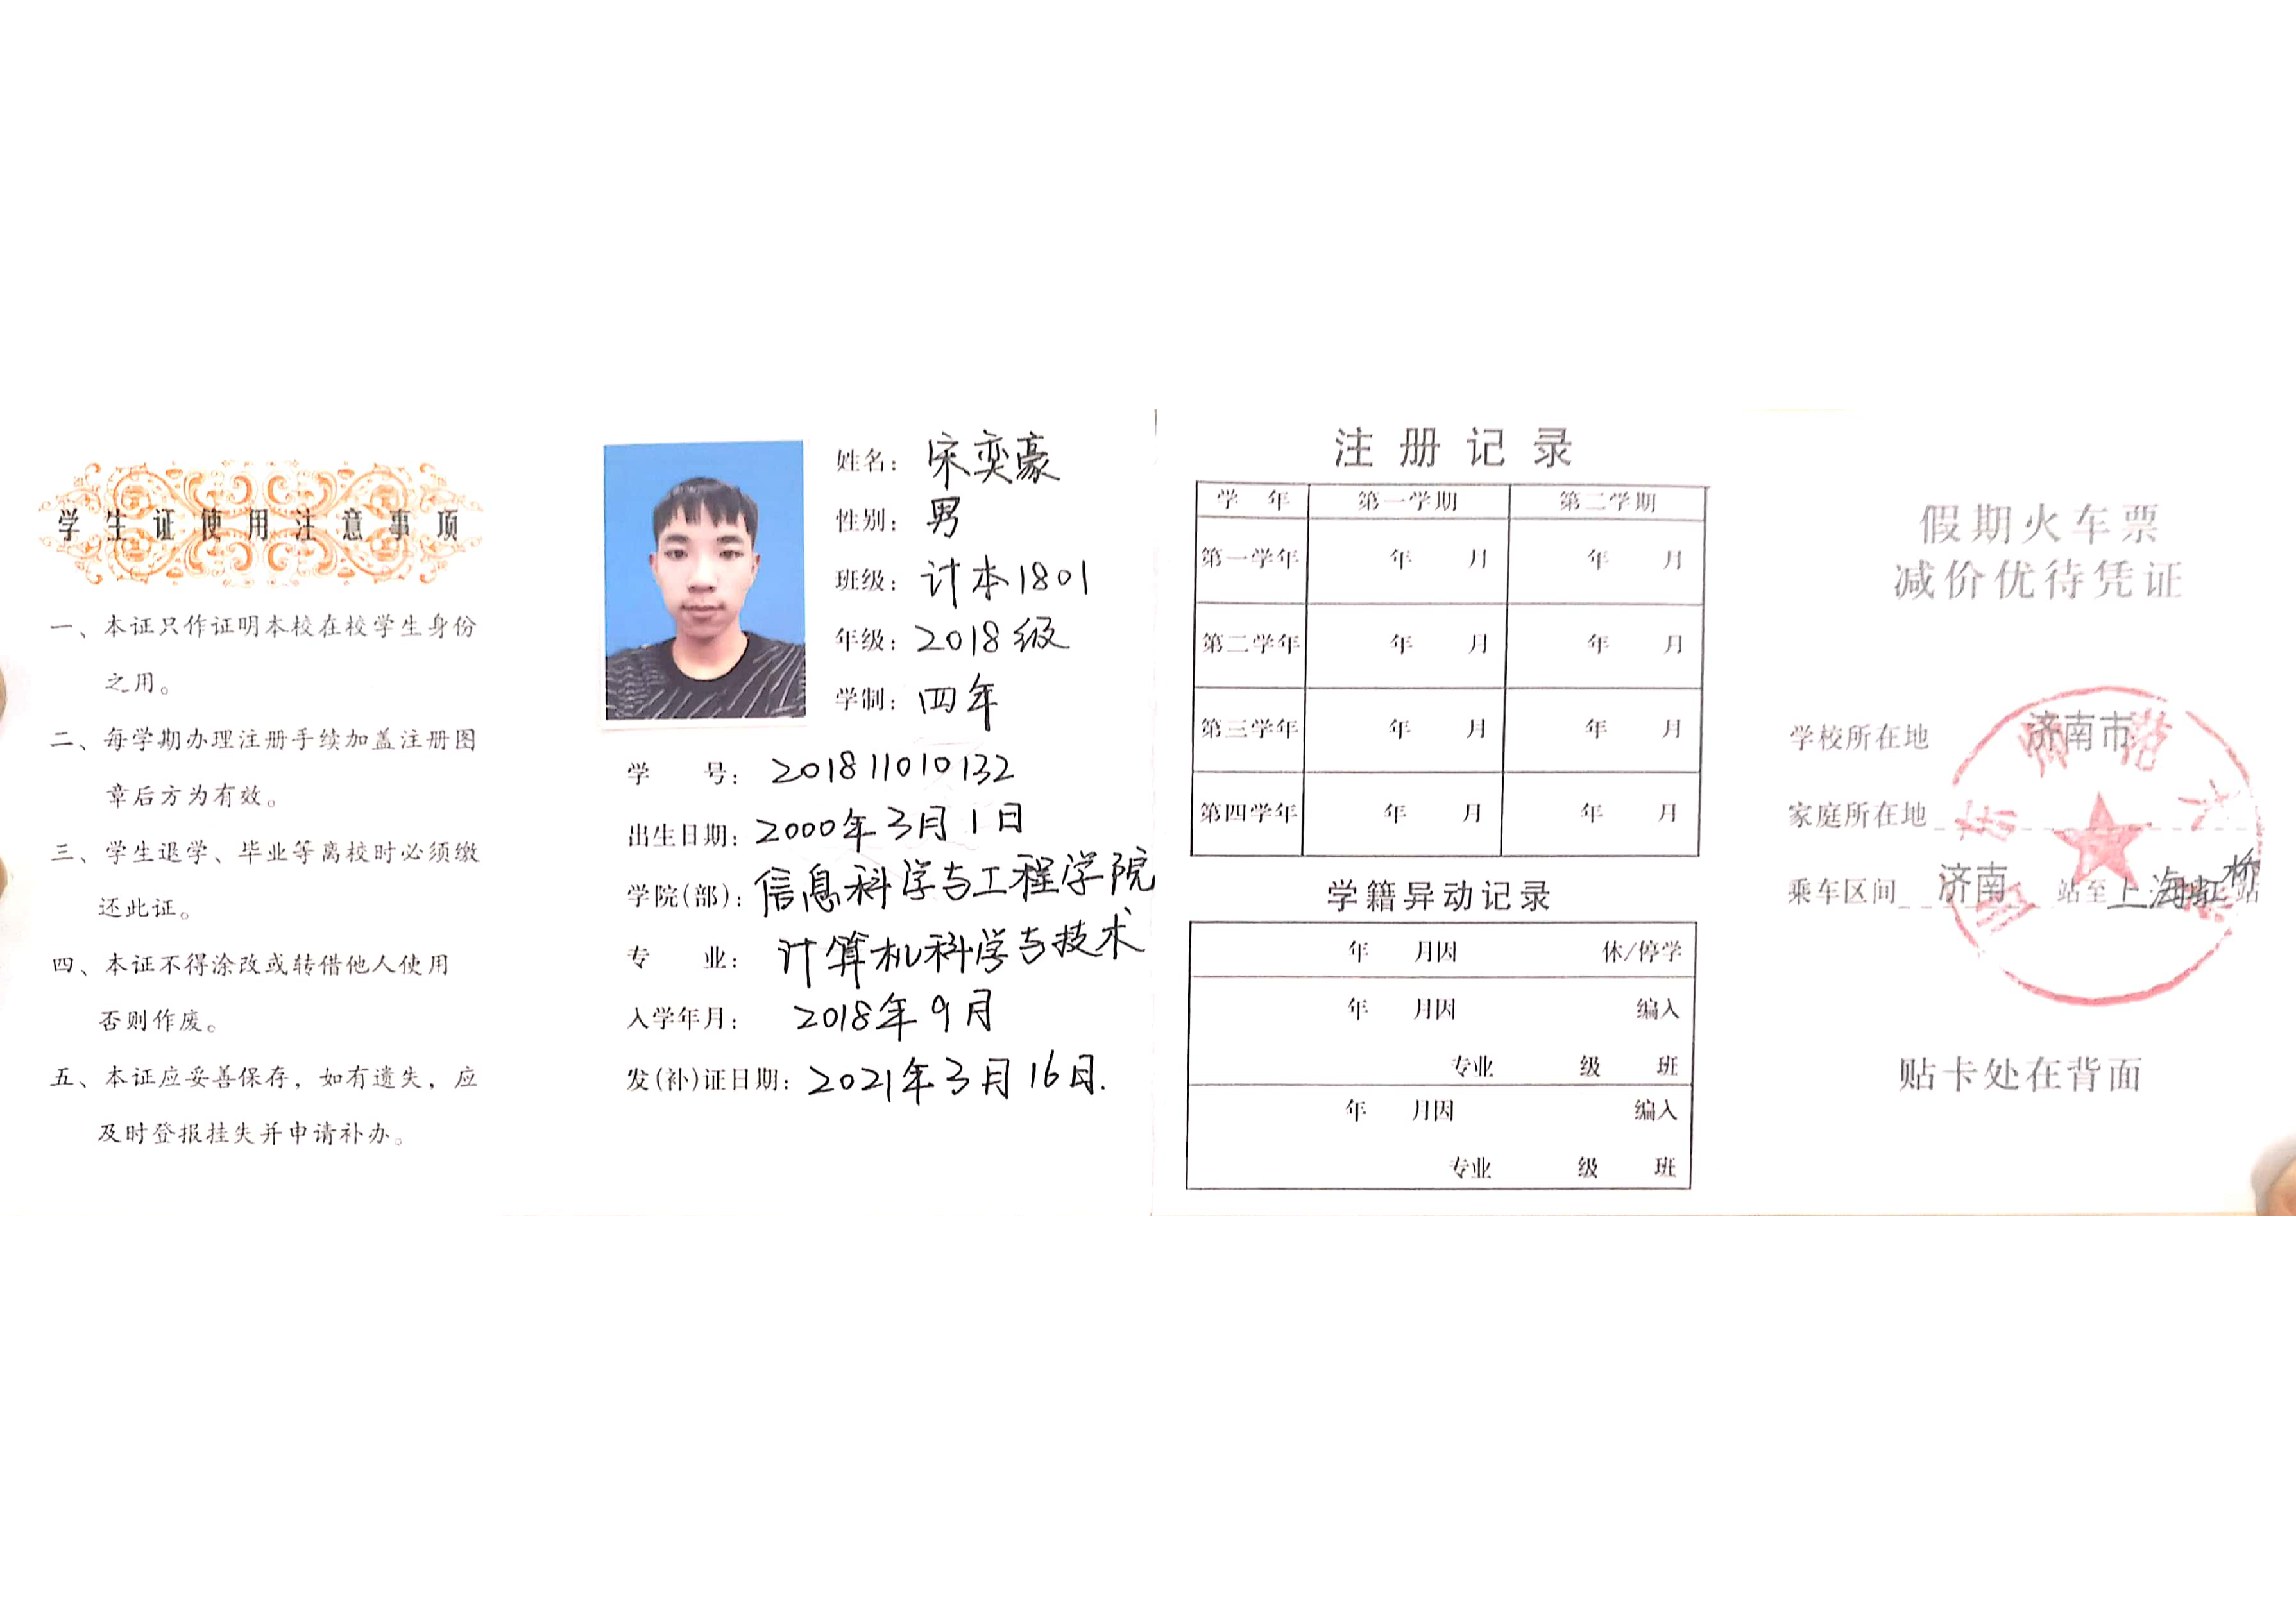 学生证使用注意事项
一、本证只作证明本校在校学生身份
之用。
二、每学期办理注册手续加盖注册图
章后方为有效。
三、学生退学、毕业等离校时必须缴
还此证。
四、本证不得涂改或转借他人使用
否则作废。
五、本证应妥善保存，如有遗失，应
及时登报挂失并申请补办。
姓名：宋奕豪
性别：男
班级：计本1801
年级：2018级
学制：四年
学 号：201811010132
出生日期：2000年3月1日
学院(部)：信息科学与工程学院
专 业：计算机科学与技术
入学年月：2018年9月
发(补)证日期：2021年3月16日.
注册记录
学 年 第一学期 第二学期
第一学年 年 月 年 月
第二学年 年 月 年 月
第三学年 年 月 年 月
第四学年 年 月 年 月
学籍异动记录
年 月因 休/停学
年 月因 编入
专业 级 班
年 月因 编入
专业 级 班
假期火车票
减价优待凭证
学校所在地 济南市
家庭所在地
乘车区间 济南 站至上海虹桥站
贴卡处在背面